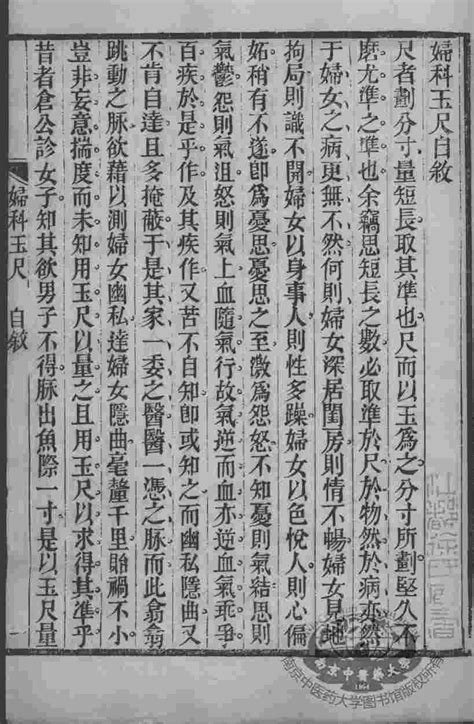 婦科玉尺自敘
尺者劃分寸量短長取其準也尺而以玉爲之分寸所劃堅久不
磨尤準之準也余竊思短長之數必取準於尺於物然於病亦然
于婦女之病更無不然何則婦女深居閨房則情不暢婦女見地
拘局則識不開婦女以身事人則性多躁婦女以色悅人則心偏
妬稍有不遂卽爲憂思憂思之至激爲怨怒不知憂則氣結思則
氣鬱怨則氣沮怒則氣上血隨氣行故氣逆而血亦逆血氣乖爭
百疾於是乎作及其疾作又苦不自知卽或知之而幽私隱曲又
不肯自達且多掩蔽于是其家一委之醫醫一憑之脈而此翕翕
跳動之脈欲藉以測婦女幽私達婦女隱曲毫釐千里貽禍不小
豈非妄意揣度而未知用玉尺以量之且用玉尺以求得其準乎
昔者倉公診女子知其欲男子不得脈出魚際一寸是以玉尺量
婦科玉尺 自敘 一
南京中醫藥大學
1954
南京中医药大学图书馆版权所有